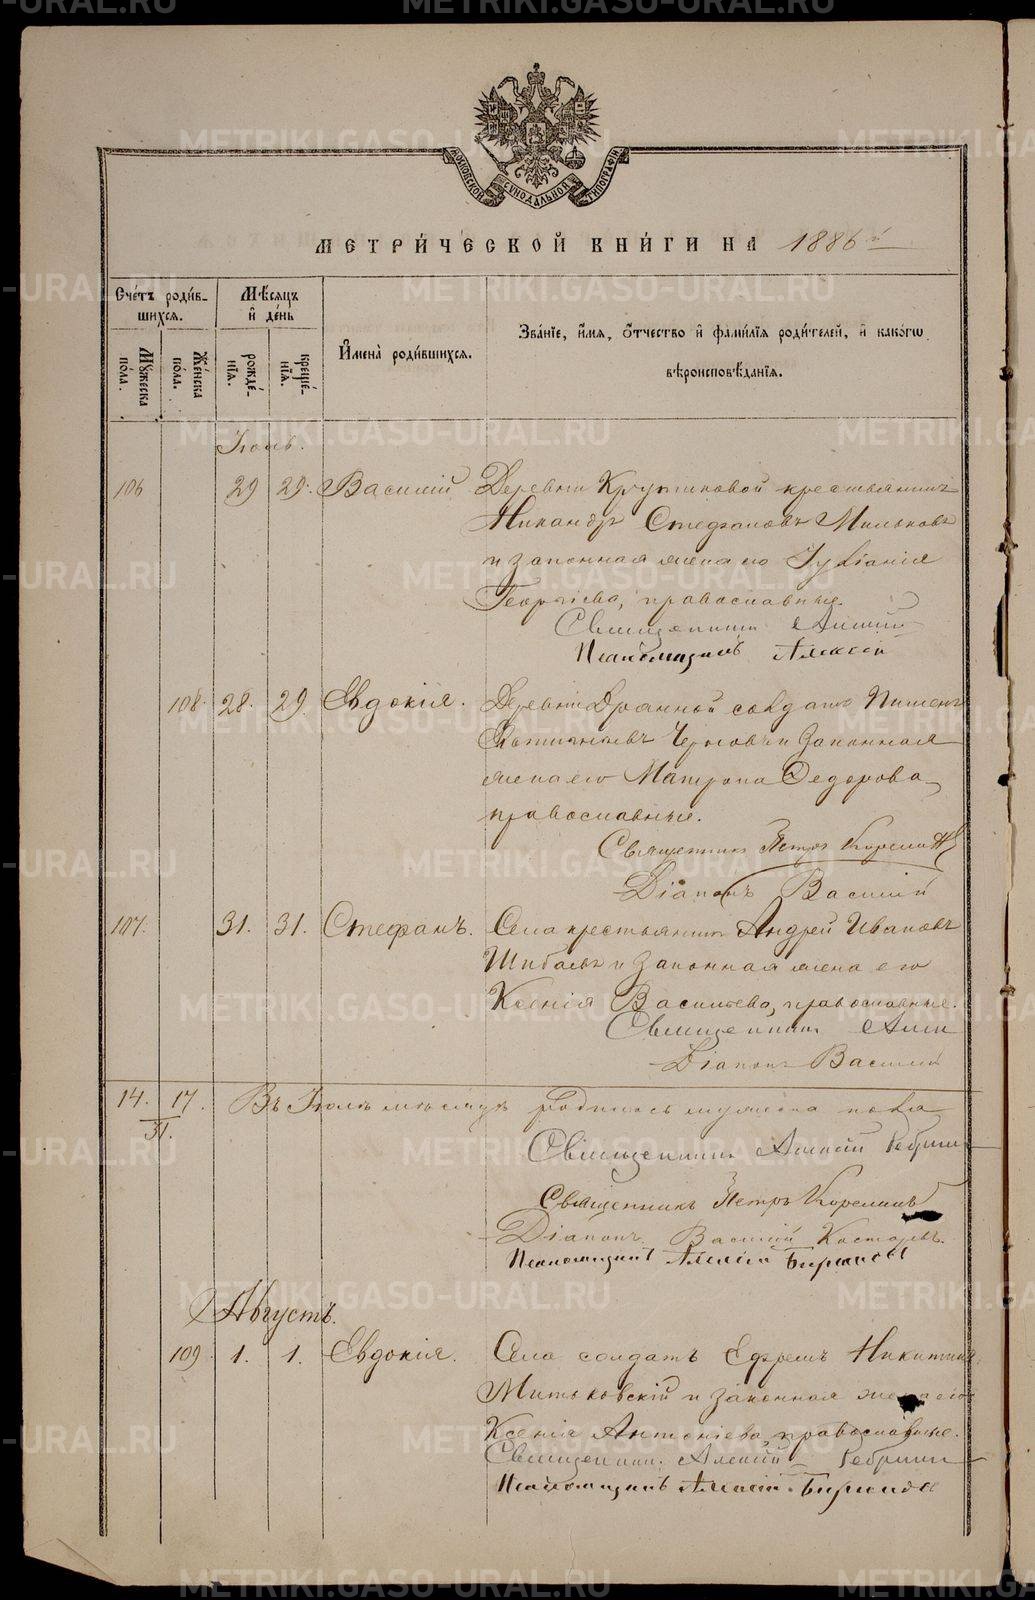 МОСКОВСКОЙ СѴНОДАЛЬНОЙ ТИПОГРАФІИ
МЕТРИ́ЧЕСКОЙ КНИ́ГИ НА 1886й
Сче́тъ роди́в-
шихся.
Мѣсяцъ
и҆ де́нь
И҆мена̀ роди́вшихся.
Зва́нїе, и҆́мя, ѻ҆́тчество и҆ фами́лїя роди́телей, и҆ како́гѡ
вѣроисповѣ́данїя.
Мꙋжеска
по́ла.
Же́нска
по́ла.
рожде́-
нїя.
креще́-
нїя.
Іюль.
106 29 29. Василій Деревни Крутиховой крестьянинъ
Никандръ Стефановъ Мильковъ
и законная жена его Іуліанія
Георгіева, православные.
Священникъ Алексій
Псаломщикъ Алексій
108. 28. 29. Евдокія. Деревни солдатъ Пимен
законная
жена его Матрона Ѳедорова,
православные.
Священникъ Петръ Корелинъ
Діаконъ Василій
107. 31. 31. Стефанъ. Села крестьянинъ Андрей Ивановъ
и законная жена его
Ксенія Васильева, православные.
Священникъ
Діаконъ Василій
14. 17. Въ Іюлѣ мѣсяцѣ родилось мужеска пола
31.
Священникъ Алексій
Священникъ Петръ Корелинъ
Діаконъ Василій Костаревъ.
Псаломщикъ Алексій Бирюковъ
Августъ.
109 1. 1. Евдокія. Села солдатъ Ефремъ Никитинъ
Митьковскій и законная жена его
Ксенія Антоніева, православные.
Священник. Алексій
Псаломщикъ Алексій Бирюковъ
METRIKI.GASO-URAL.RU